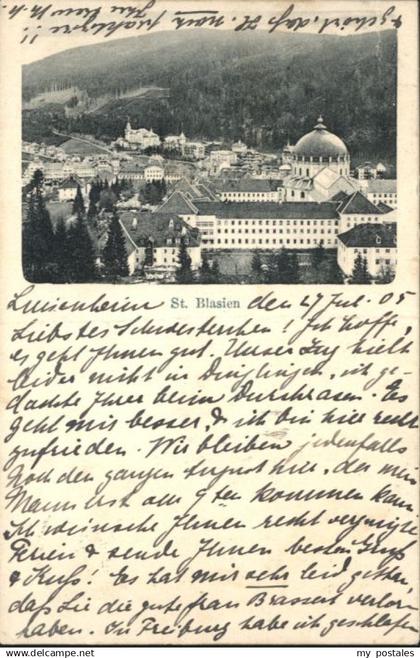 gehört, daß St.
St. Blasien
Luisenheim den 27 Jul. 05
Liebstes Schwesterchen! Ich hoffe,
es geht Ihnen gut. Unser Zug hielt
leider nicht in Dinglingen, ich ge-
dachte Ihrer beim Durchrasen. Es
geht mir besser, & ich bin hier recht
zufrieden. Wir bleiben jedenfalls
noch den ganzen August hier, da mein
Mann erst am 9ten kommen kann
Ich wünsche Ihnen recht vergnügte
Ferien & sende Ihnen besten Gruß
& Kuß! Es hat mir sehr leid gethan,
daß Sie die gute Frau Brassert verloren
haben. In Freiburg habe ich geschlafen
www.my-postales.com